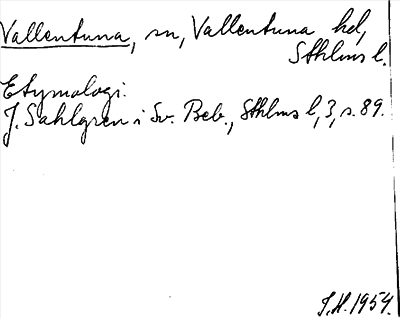 Vallentuna, sn, Vallentuna hd,
Sthlms l.
Etymologi:
J. Sahlgren i Sv. Beb., Sthlms l, 3, s. 89.
I.H. 1954.